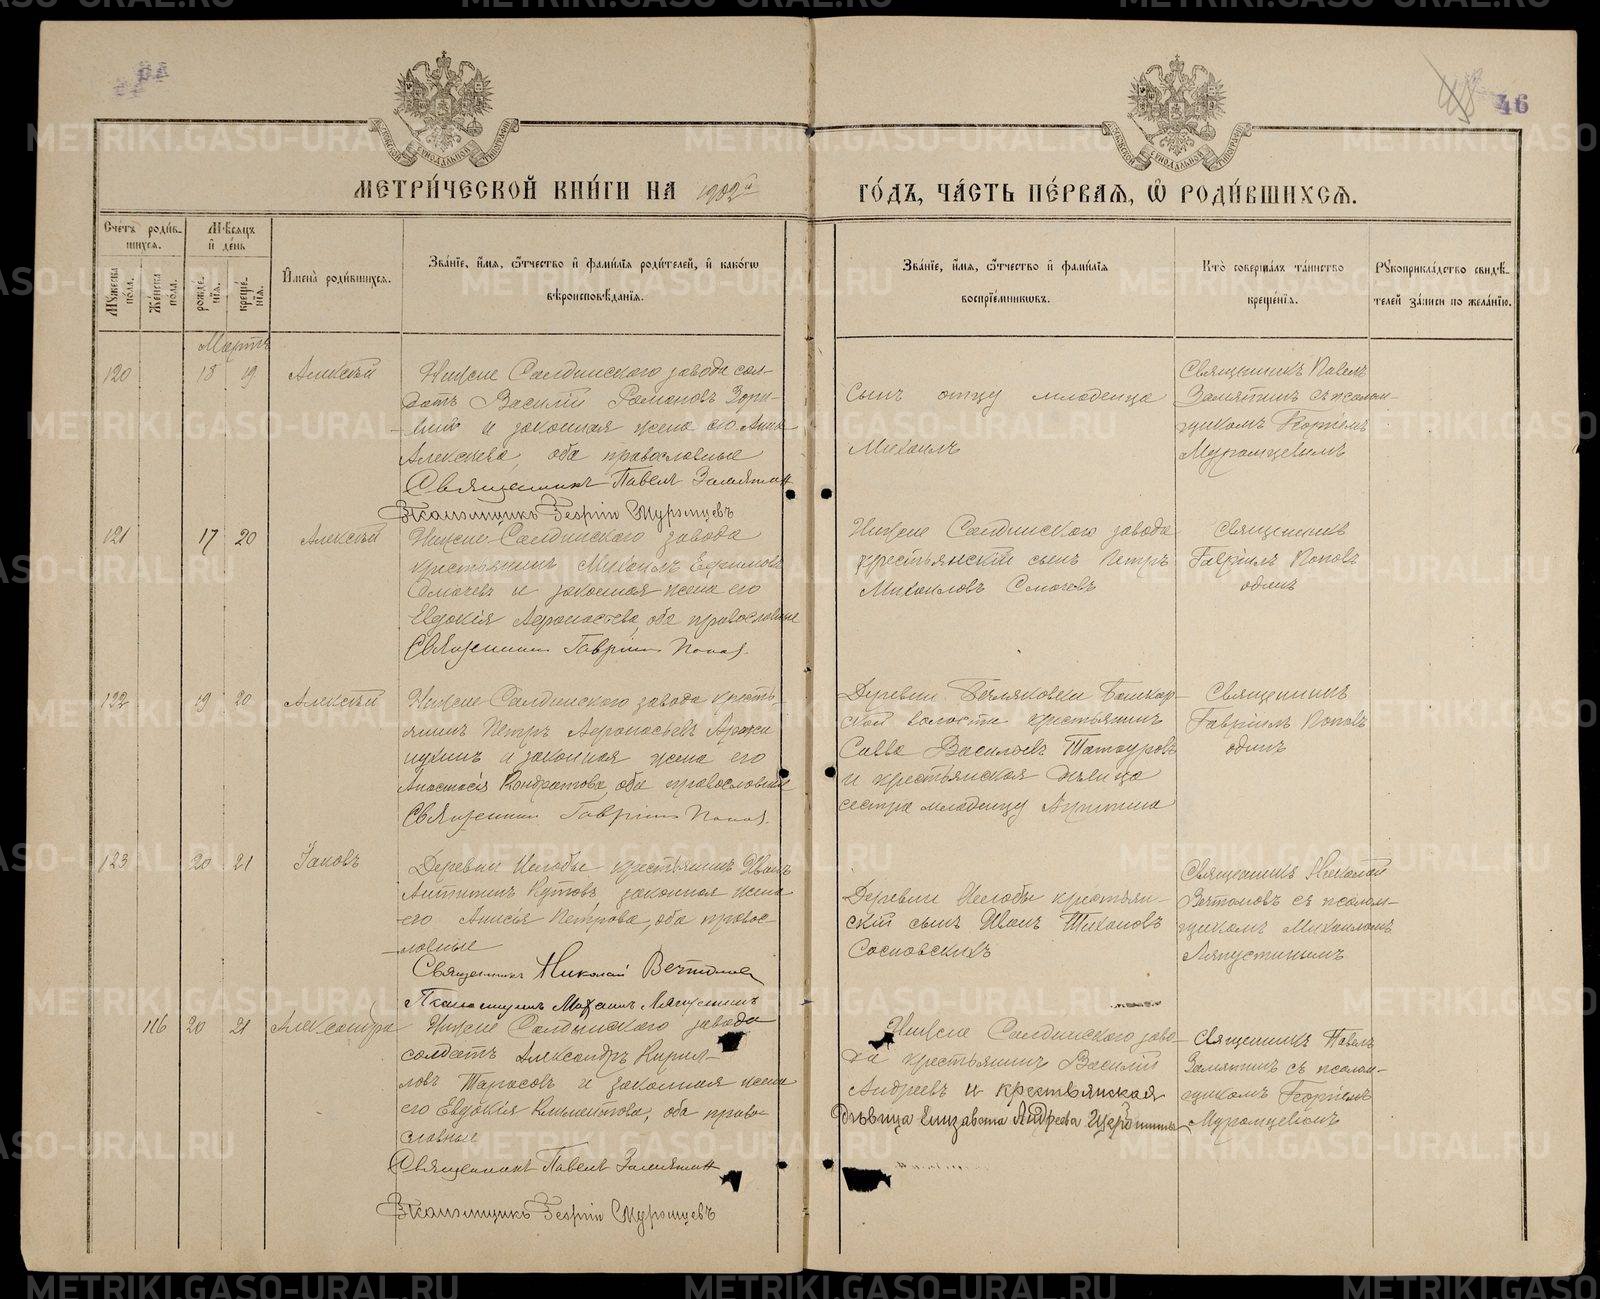 46
МЕТРИ́ЧЕСКОЙ КНИ́ГИ НА 1902й ГО́ДЪ, ЧА́СТЬ ПЕ́РВАЯ, Ѽ РОДИ́ВШИХСЯ.
Счетъ роди́в-
шихся.
Мѣсяцъ
и де́нь
Мужеска пола.
Же́нска пола.
рожде́нїя.
креще́нїя.
Имена̀ роди́вшихся.
Зва́нїе, и́мя, ѻ́тчество и фами́лїя роди́телей, и како́гѡ
вѣроисповѣ́данїя.
Зва́нїе, и́мя, ѻ́тчество и фами́лїя
воспрїе́мниковъ.
Кто̀ соверша́лъ та́инство
креще́нїя.
Рꙋкоприкла́дство свидѣ́-
телей за́писи по жела́нїю.
Мартъ
120 18 19 Алексѣй
Нижне Салдинского завода сол-
датъ Василій Романовъ
и законная жена его Анна
Алексѣева, оба православные
Священникъ Павелъ Замятин
Псаломщикъ Георгій Муромцевъ
Сынъ отцу младенца
Михаилъ
Священникъ Павелъ
Замятинъ съ псалом-
щикомъ Георгіемъ
Муромцевымъ
121 17 20 Алексѣй
Нижне Салдинского завода
крестьянинъ Михаилъ Ефимовъ
Смагевъ и законная жена его
Евдокія Афонасьева, оба православные
Священникъ Гавріилъ Поповъ
Нижне Салдинского завода
крестьянскій сынъ Петръ
Михаиловъ Смагевъ
Священникъ
Гавріилъ Поповъ
одинъ
122 19 20 Алексѣй
Нижне Салдинского завода кресть-
янинъ Петръ Афонасьевъ
и законная жена его
Анастасія Кондратова, оба православные
Священникъ Гавріилъ Поповъ
Деревни
волости крестьянинъ
Савва Василіевъ Татауровъ
и крестьянская дѣвица
сестра младенцу
Священникъ
Гавріилъ Поповъ
одинъ
123 20 21 Іаковъ
Деревни Нелобы крестьянинъ Иванъ
законная жена
его Анисія Петрова, оба правос-
лавные
Священникъ Николай
Псаломщикъ Михаилъ Ляпустинъ
Деревни Нелобы крестьян-
скій сынъ Иванъ Тихоновъ
Сосновскихъ
Священникъ Николай
съ псалом-
щикомъ Михаиломъ
Ляпустинымъ
116 20 21 Александра
Нижне Салдинского завода
солдатъ Александръ Кирил-
ловъ Тарасовъ и законная жена
его Евдокія Климентова, оба право-
славные
Священникъ Павелъ Замятин
Псаломщикъ Георгій Муромцевъ
Нижне Салдинского заво-
да крестьянинъ Василій
Андреевъ и крестьянская
дѣвица Елизавета Андреева
Священникъ Павелъ
Замятинъ съ псалом-
щикомъ Георгіемъ
Муромцевымъ
METRIKI.GASO-URAL.RU